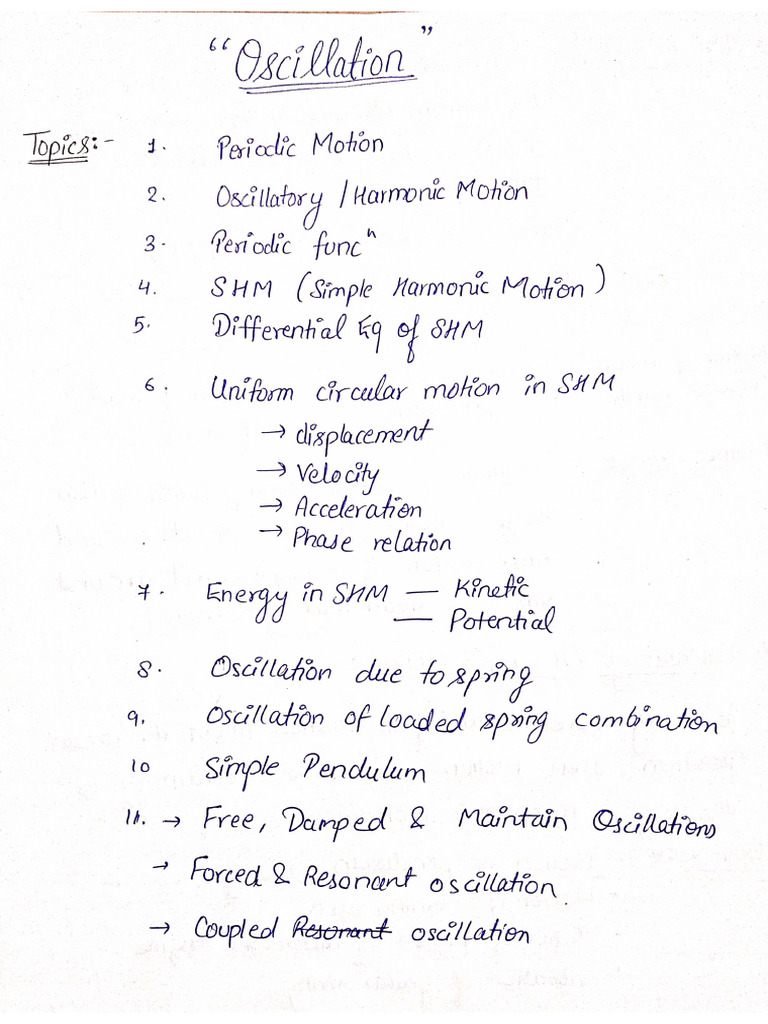 "Oscillation"
Topics:- 1. Periodic Motion
2. Oscillatory / Harmonic Motion
3. Periodic funcⁿ
4. SHM (Simple Harmonic Motion)
5. Differential Eq of SHM
6. Uniform circular motion in SHM
→ displacement
→ Velocity
→ Acceleration
→ Phase relation
7. Energy in SHM — Kinetic
— Potential
8. Oscillation due to spring
9. Oscillation of loaded spring combination
10 Simple Pendulum
11. → Free, Damped & Maintain Oscillations
→ Forced & Resonant oscillation.
→ Coupled Resonant oscillation